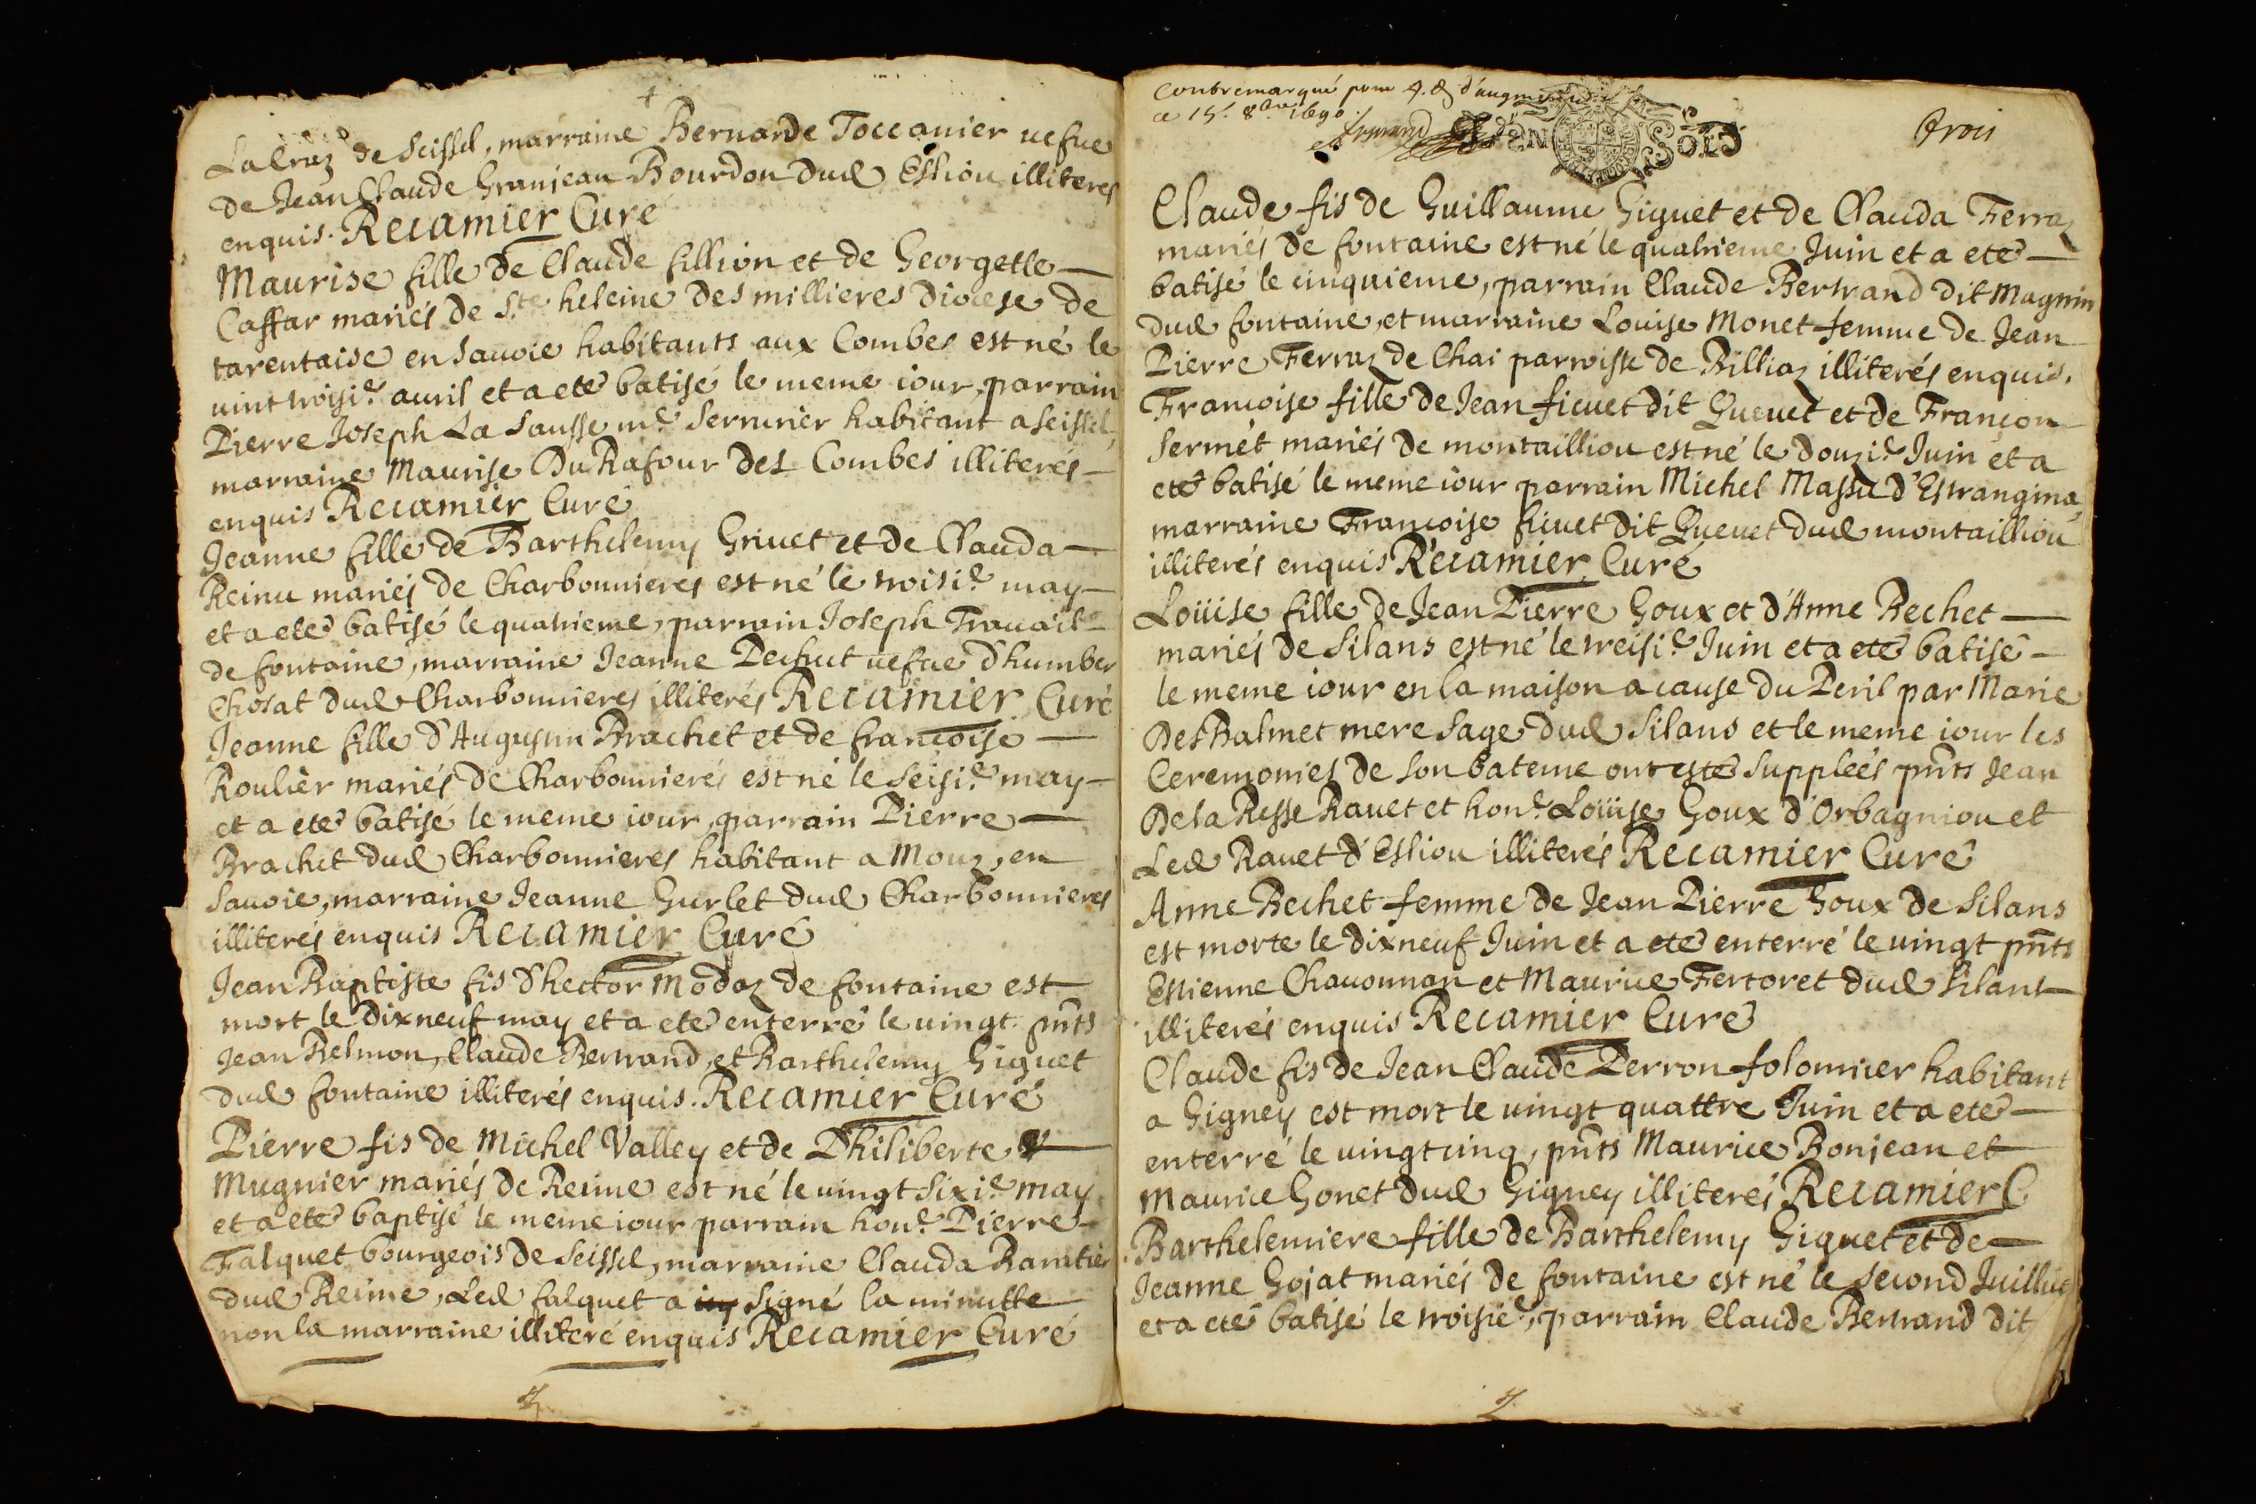 LaCruz de Seissel, marraine Bernarde Toccanier uefue
de Jean Claude Granjean Bourdon dud Esliou illiteres
enquis. Recamier Curé
Maurise fille de Claude fillion et de Georgette
Caffar mariés de Ste heleine des millieres Diocese de
tarentaise en sauoie habitants aux Combes est né le
uint troisie auril et a eté batisé le meme iour, parrain
Pierre Joseph La Sausse me Serrurier habitant a seissel,
marraine Maurise Du Rafour des Combes illiterés
enquis Recamier Curé
Jeanne fille de Barthelemy Griuet et de Clauda
Reinu mariés de Charbonnieres est né le troisie may
et a eté batisé le quatrieme, parrain Joseph Trauail
de fontaine, marraine Jeanne Dechut uefue d'humber
Chosat dud Charbonnieres illiterés Recamier Curé
Jeanne fille d'Augustin Brachet et de francoise
Roulier mariés de Charbonnieres est né le seisie may
et a eté batisé le meme iour, parrain Pierre
Brachet dud Charbonnieres habitant a Mouz, en
Sauoie, marraine Jeanne Gurlet dud Charbonnieres
illiterés enquis Recamier Curé
Jean Baptiste fis d'hector Modaz de fontaine est
mort le dixneuf may et a eté enterré le uingt pnts
Jean Belmon, Claude Bertrand, et Barthelemy Giguet
dud fontaine illiterés enquis. Recamier Curé
Pierre fis de Michel Valley et de Philiberte
Mugnier mariés de Reime est né le uingt sixie may
et a eté baptisé le meme iour parrain hone Pierre
Falquet bourgeois de seissel, marraine Clauda Baratier
dud Reime, Led falquet a signé la minutte
non la marraine illiteré enquis Recamier Curé
Contremarqué pour 4. d'augm
ce 15e 8bre 1690
SOLS
trois
Claude fis de Guillaume Giguet et de Clauda Ferraz
mariés de fontaine est né le quatrieme Juin et a eté
batisé le cinquieme, parrain Claude Bertrand dit Magnin
dud fontaine, et marraine Louise Monet femme de Jean
Pierre Ferraz de Chai parroisse de Billiaz illiterés enquis.
Francoise fille de Jean ficuet dit Queuet et de Françon
Sermet mariés de montailliou est né le douzie Juin et a
eté batisé le meme iour parrain Michel Massu d'Estrangina
marraine Francoise ficuet dit Queuet dud montailliou
illiterés enquis Recamier Curé
Loüise fille de Jean Pierre Goux et d'Anne Bechet
mariés de Silans est né le treisie Juin et a eté batisé
le meme iour en la maison a cause du Peril par Marie
DesBalmet mere sage dud Silans et le meme iour les
Ceremonies de son bateme ont esté supplées pnts Jean
De la Resse Rauet et hone Loüise Goux d'Orbagniou et
Led Rauet d'Esliou illiterés Recamier Curé
Anne Bechet femme de Jean Pierre Goux de Silans
est morte le dixneuf Juin et a eté enterré le uingt pnts
Estienne Chauonnan et Maurice Fertoret dud Silant
illiterés enquis Recamier Curé
Claude fis de Jean Claude Perron folonnier habitant
a Gigney est mort le uingt quattre Juin et a eté
enterré le uingt cinq, pnts Maurice Bonjean et
Maurice Gonet dud Gigney illiterés Recamier C
Barthelemiere fille de Barthelemy Giguet et de
Jeanne Gojat mariés de fontaine est né le second Juillet
et a eté batisé le troisie, parrain Claude Bertrand dit